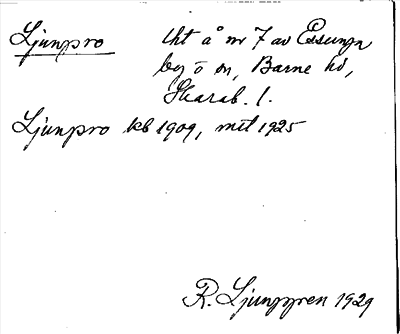 Ljunpro tht å nr 7 av Essunga
by o sn, Barne hd,
Skarab. l.
Ljunpro kb 1909, mtl 1925
R. Ljunggren 1929